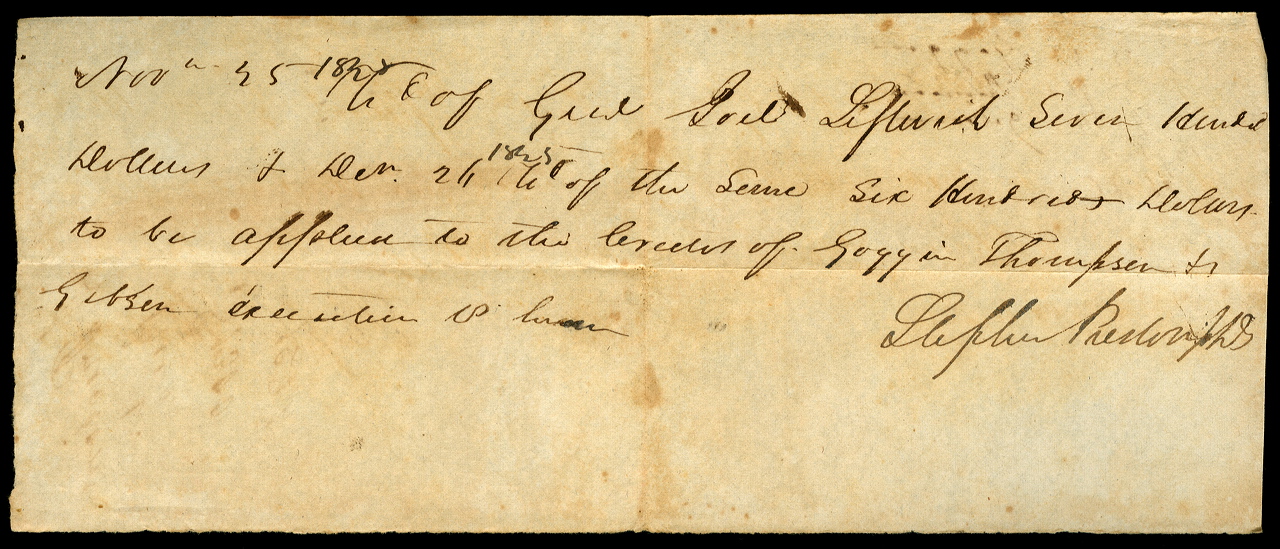 Novr 25 1825 Recd of Genl Joel Leftwich Seven Hundd
Dollars & Decr. 26 1825 Recd of the Same Six Hundred Dollars
to be applied to the Credit of Goggin Thompson &
Gibson execution vs
Stephen Preston